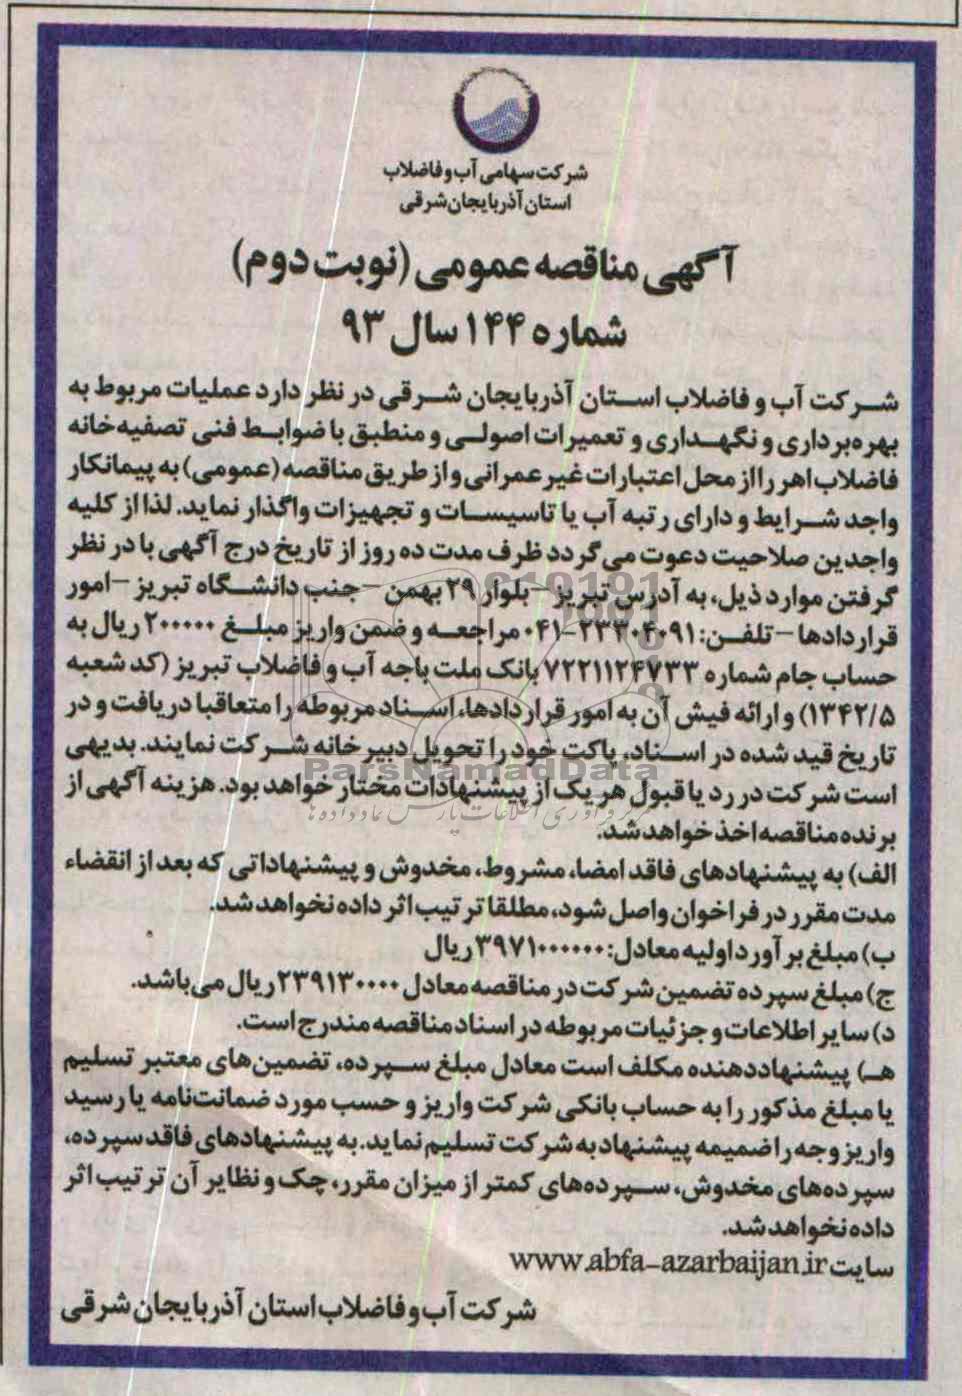 شرکت سهامی آب و فاضلاب
استان آذربایجان شرقی
آگهی مناقصه عمومی (نوبت دوم)
شماره ۱۴۴ سال ۹۳
شرکت آب و فاضلاب استان آذربایجان شرقی در نظر دارد عملیات مربوط به
بهره‌برداری و نگهداری و تعمیرات اصولی و منطبق با ضوابط فنی تصفیه‌خانه
فاضلاب اهر را از محل اعتبارات غیر عمرانی و از طریق مناقصه (عمومی) به پیمانکار
واجد شرایط و دارای رتبه آب یا تاسیسات و تجهیزات واگذار نماید. لذا از کلیه
واجدین صلاحیت دعوت می‌گردد ظرف مدت ده روز از تاریخ درج آگهی با در نظر
گرفتن موارد ذیل، به آدرس تبریز – بلوار ۲۹ بهمن – جنب دانشگاه تبریز – امور
قراردادها – تلفن: ۳۳۳۰۴۰۹۱-۰۴۱ مراجعه و ضمن واریز مبلغ ۲۰۰۰۰۰ ریال به
حساب جام شماره ۷۲۲۱۱۲۴۷۳۳ بانک ملت باجه آب و فاضلاب تبریز (کد شعبه
۱۳۴۲/۵) و ارائه فیش آن به امور قراردادها، اسناد مربوطه را متعاقبا دریافت و در
تاریخ قید شده در اسناد، پاکت خود را تحویل دبیرخانه شرکت نمایند. بدیهی
است شرکت در رد یا قبول هر یک از پیشنهادات مختار خواهد بود. هزینه آگهی از
برنده مناقصه اخذ خواهد شد.
الف) به پیشنهادهای فاقد امضا، مشروط، مخدوش و پیشنهاداتی که بعد از انقضاء
مدت مقرر در فراخوان واصل شود، مطلقا ترتیب اثر داده نخواهد شد.
ب) مبلغ برآورد اولیه معادل: ۳۹۷۱۰۰۰۰۰۰ ریال
ج) مبلغ سپرده تضمین شرکت در مناقصه معادل ۲۳۹۱۳۰۰۰۰ ریال می‌باشد.
د) سایر اطلاعات و جزئیات مربوطه در اسناد مناقصه مندرج است.
هـ) پیشنهاددهنده مکلف است معادل مبلغ سپرده، تضمین‌های معتبر تسلیم
یا مبلغ مذکور را به حساب بانکی شرکت واریز و حسب مورد ضمانت‌نامه یا رسید
واریز وجه را ضمیمه پیشنهاد به شرکت تسلیم نماید. به پیشنهادهای فاقد سپرده،
سپرده‌های مخدوش، سپرده‌های کمتر از میزان مقرر، چک و نظایر آن ترتیب اثر
داده نخواهد شد.
سایت www.abfa-azarbaijan.ir
شرکت آب و فاضلاب استان آذربایجان شرقی
ParsNamadData